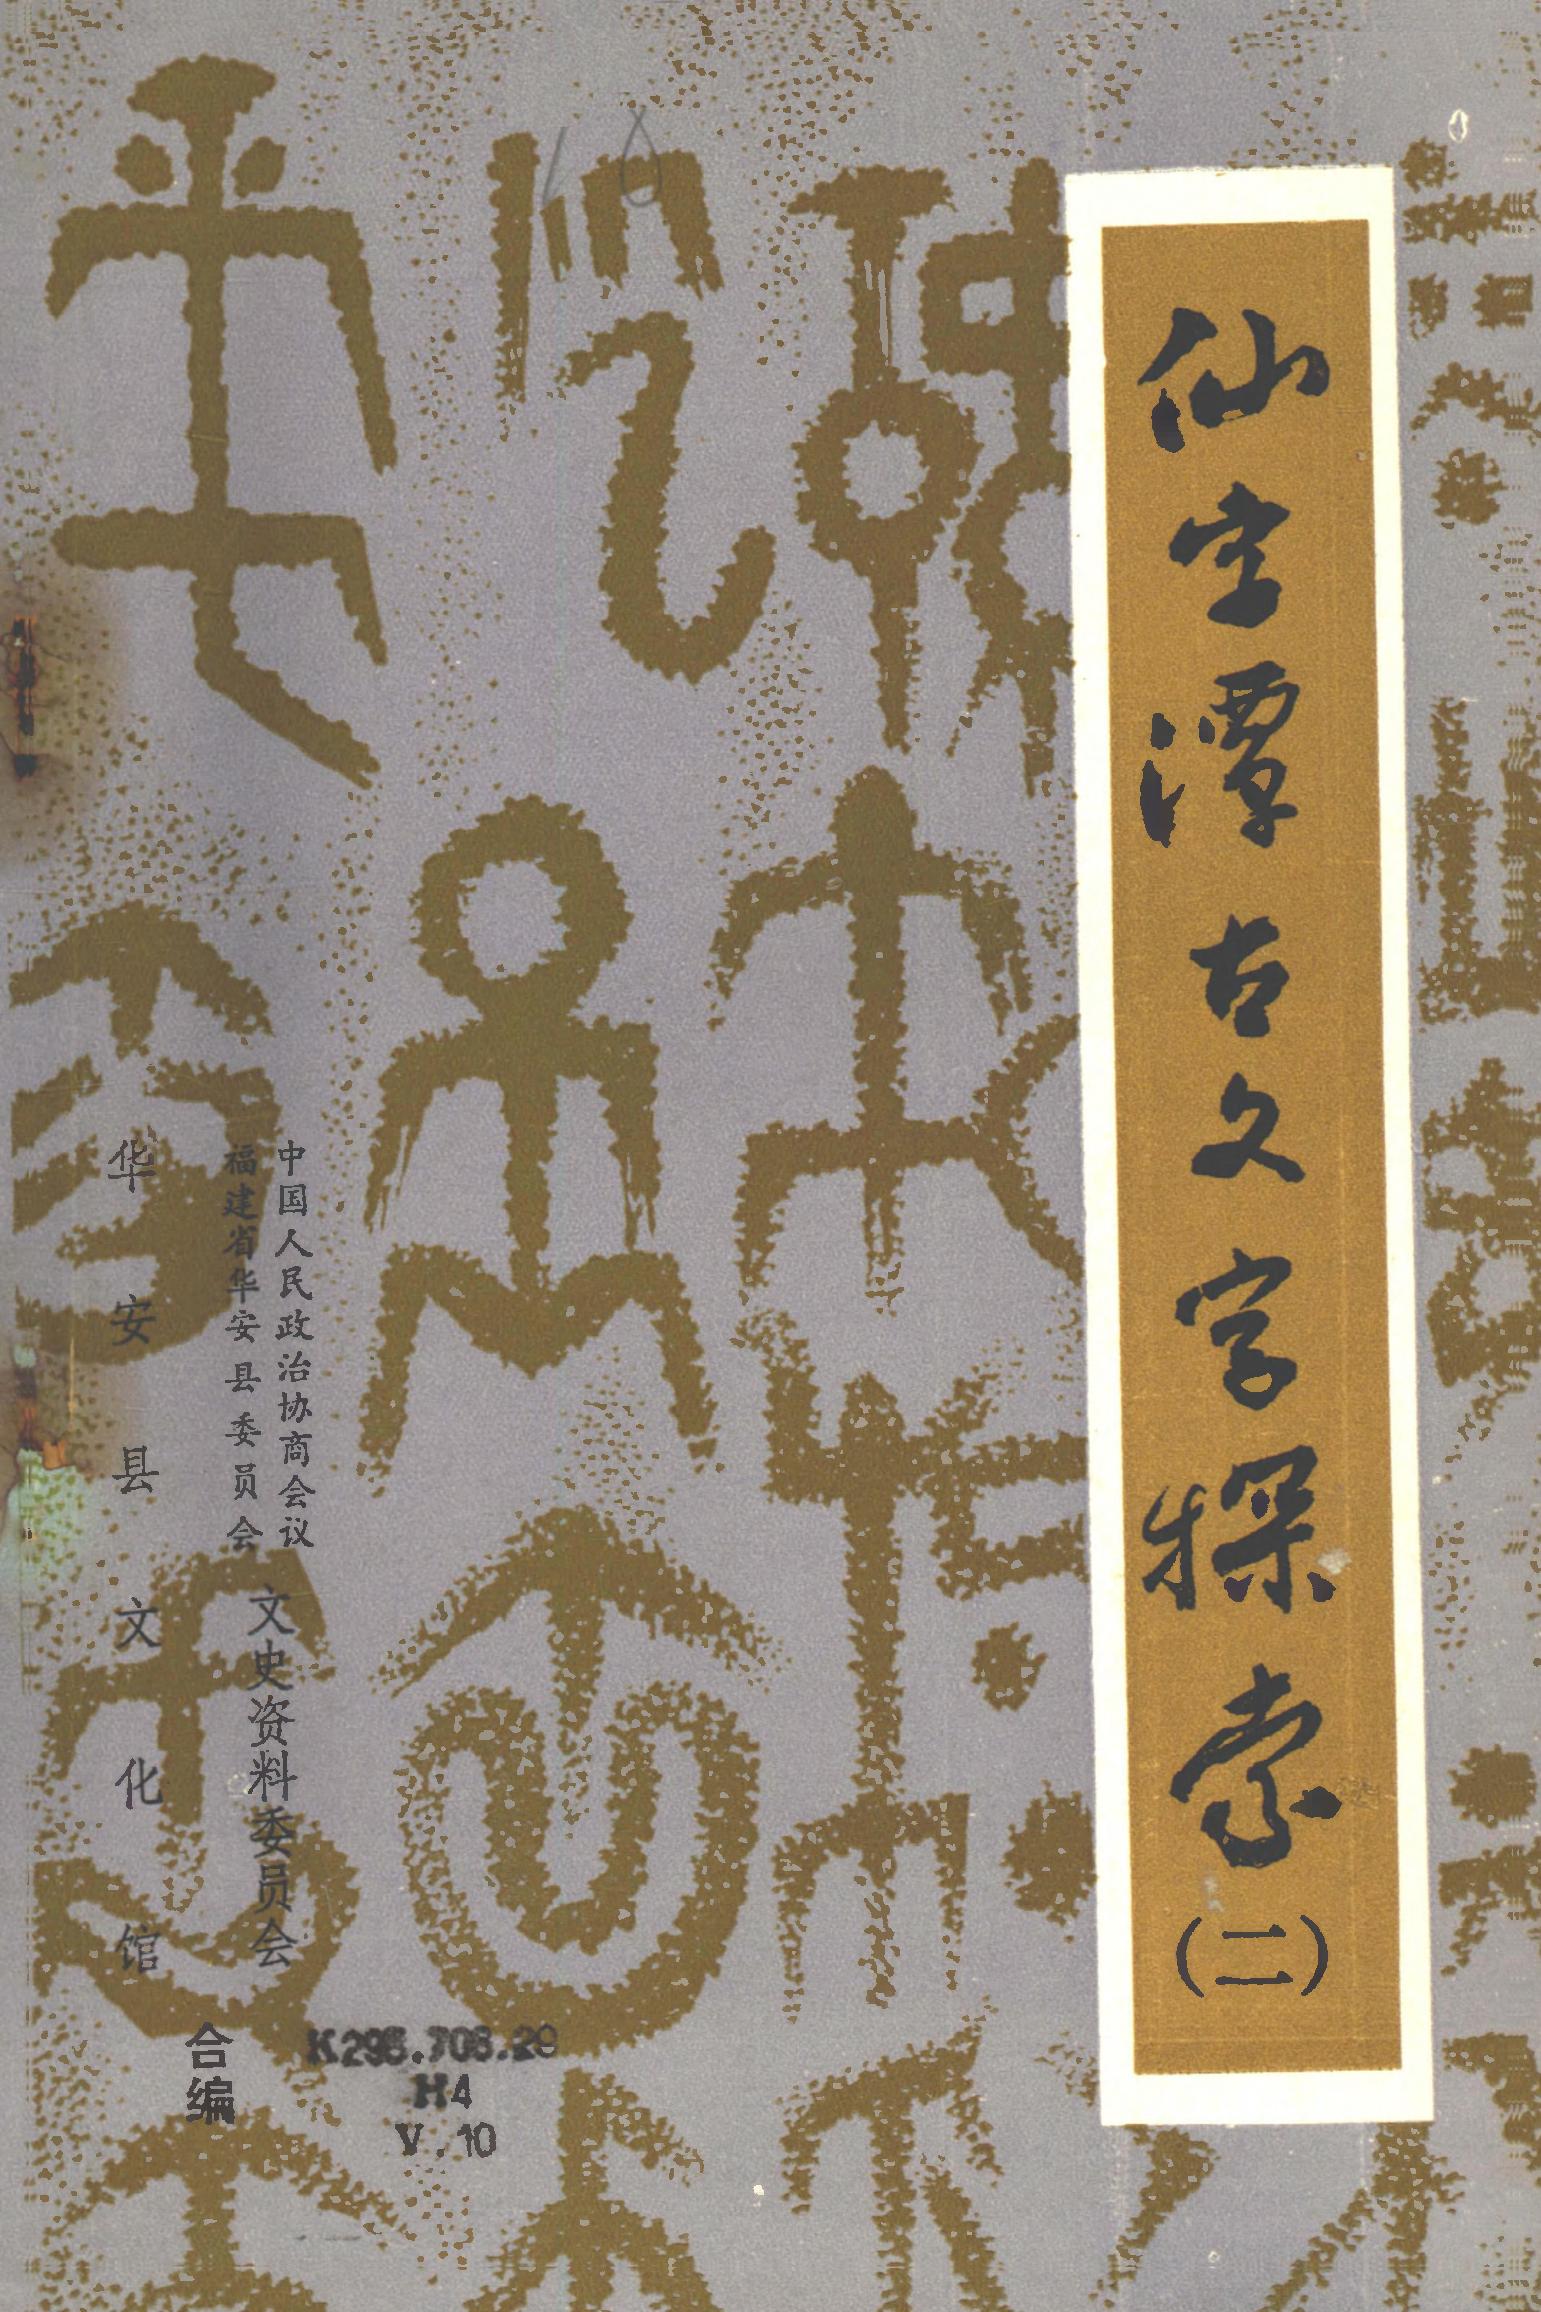 仙字潭古文字探索
(二)
中国人民政治协商会议
福建省华安县委员会
文史资料委员会
华安县文化馆
合编
K295.708.29
H4
V.10